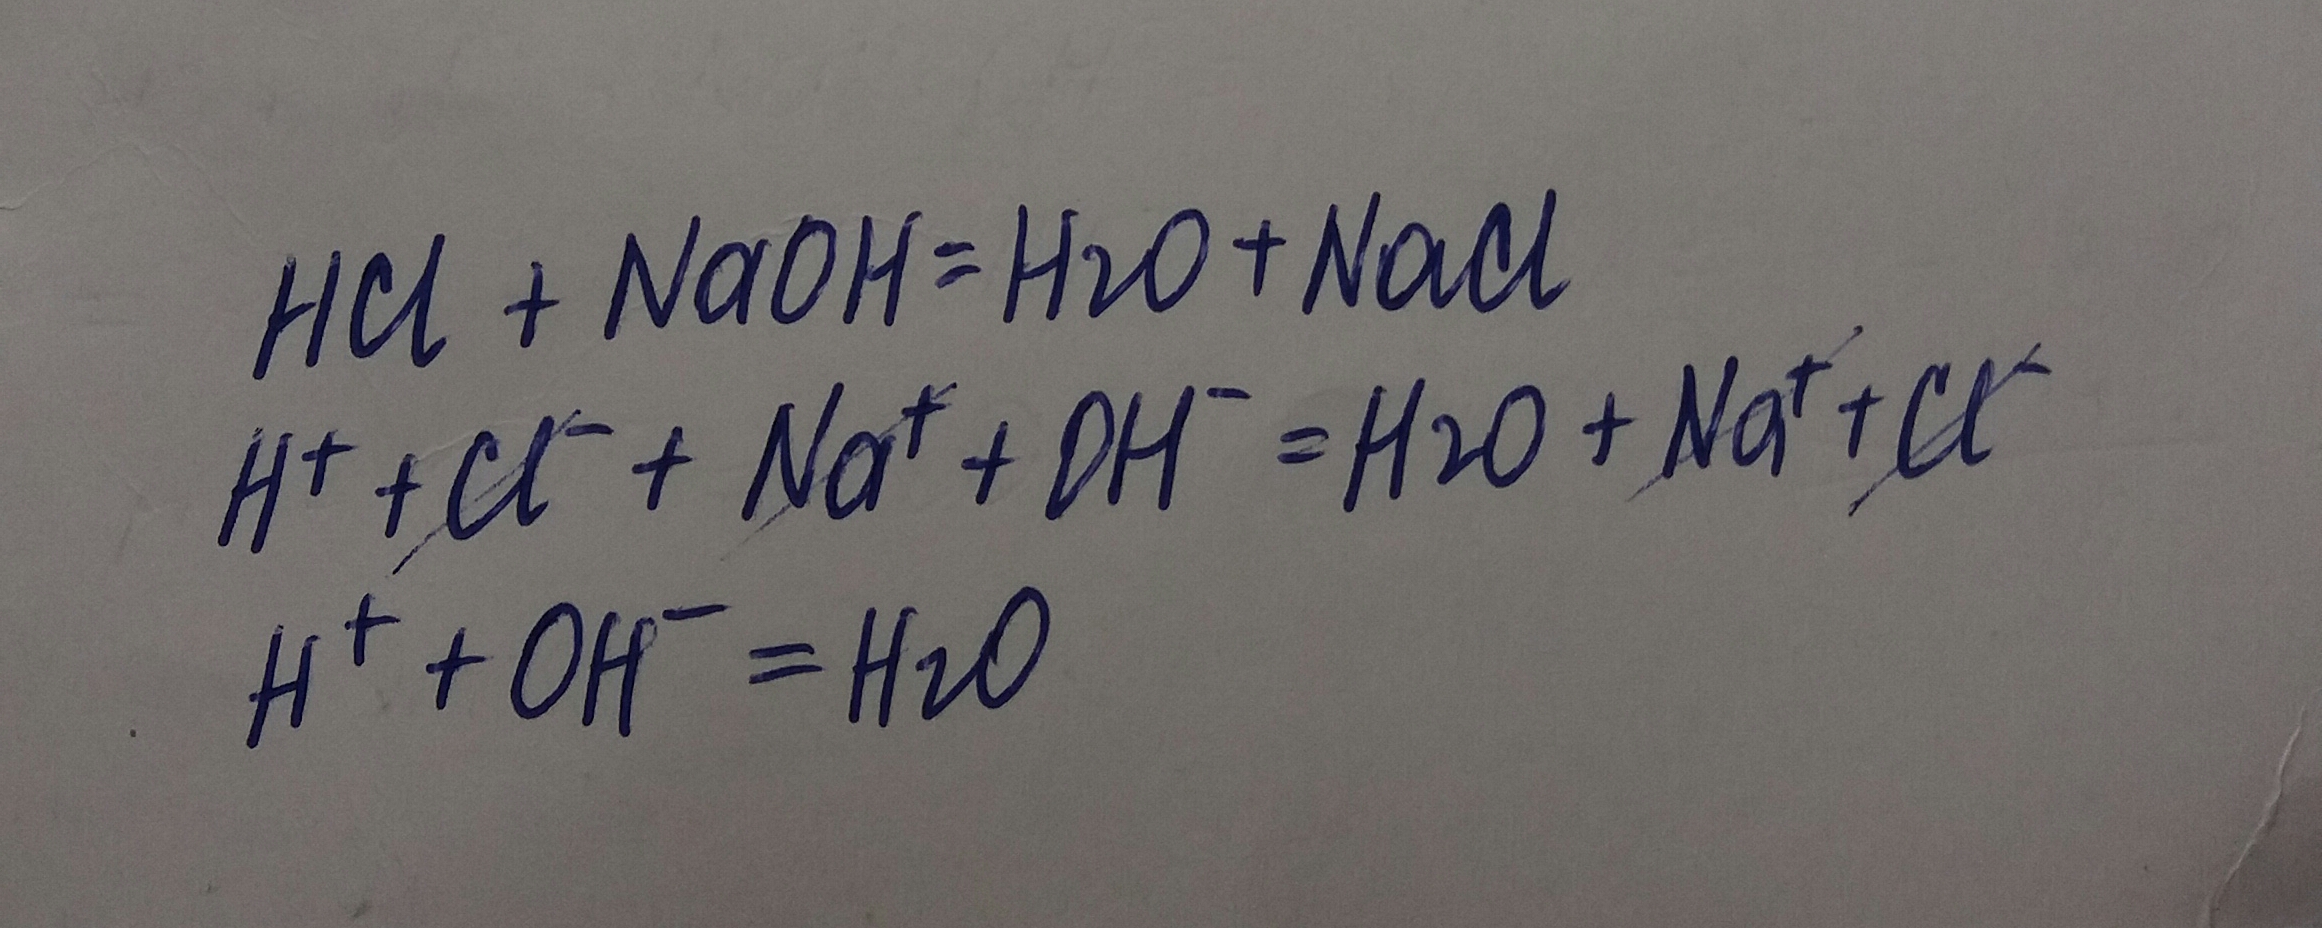 HCl + NaOH = H2O + NaCl
H⁺ + Cl⁻ + Na⁺ + OH⁻ = H2O + Na⁺ + Cl⁻
H⁺ + OH⁻ = H2O